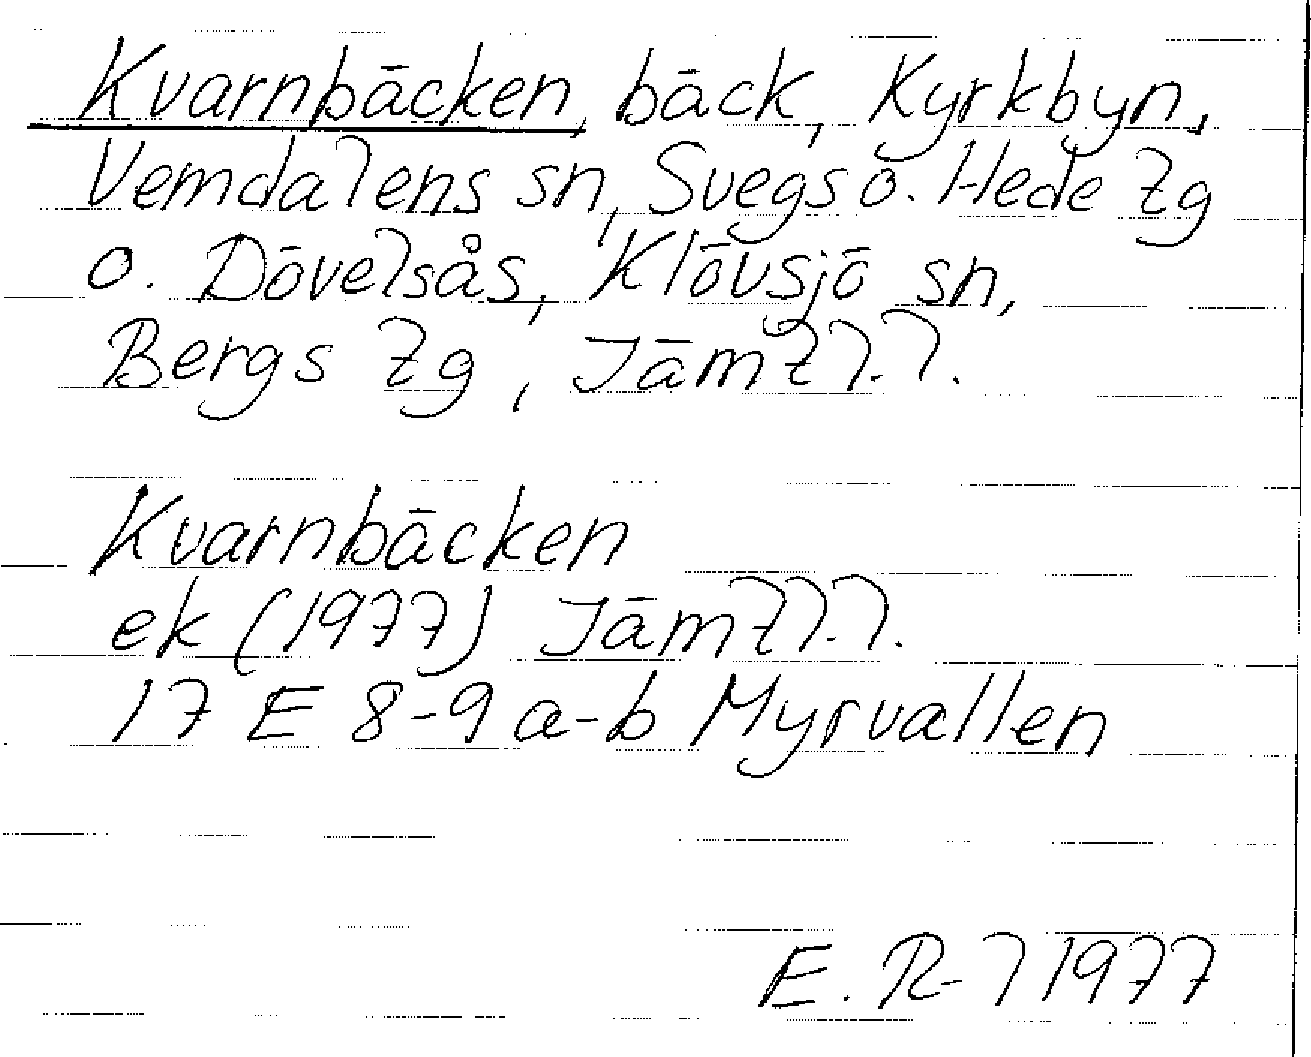 Kvarnbäcken, bäck, Kyrkbyn,
Vemdalens sn, Svegs o. Hede tg
o. Dövelsås, Klövsjö sn,
Bergs tg, Jämtl.l.
Kvarnbäcken
ek (1977) Jämtl.l.
17 E 8-9 a-b Myrvallen
E. R-l 1977